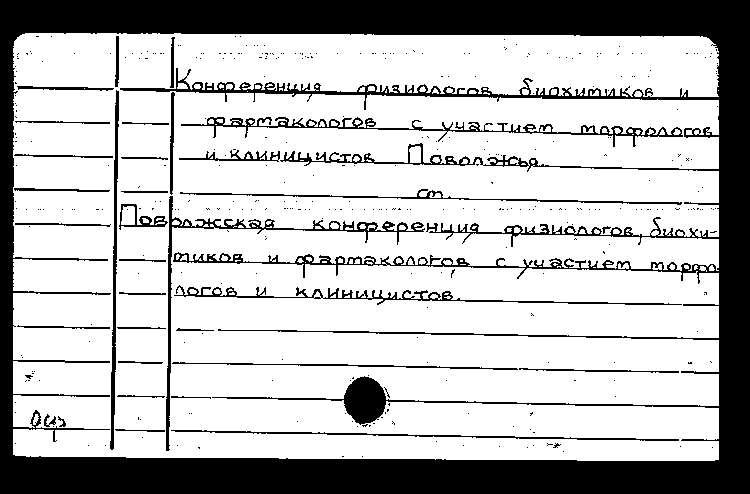 Конференция физиологов, биохимиков и
фармакологов с участием морфологов
и клиницистов Поволжья.
см.
Поволжская конференция физиологов, биохи-
миков и фармакологов с участием морфо-
логов и клиницистов.